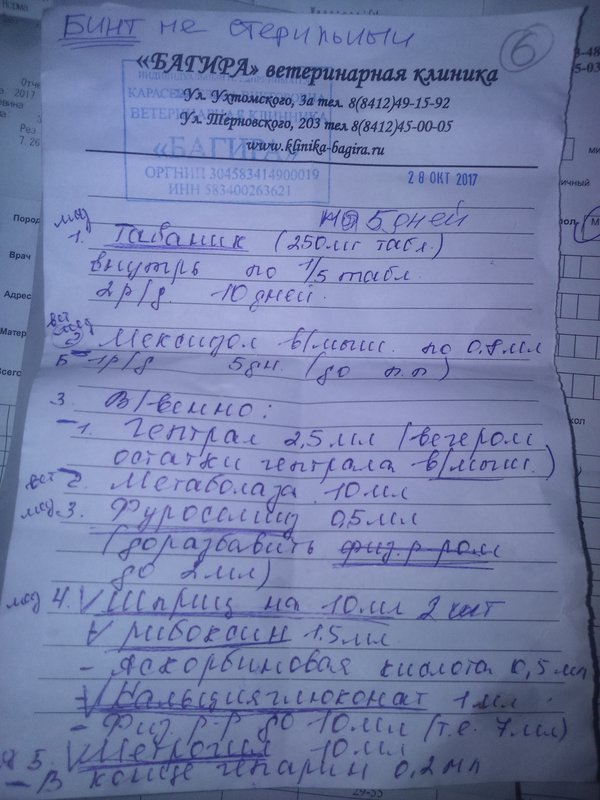 БИНТ не стерильный
6
«БАГИРА» ветеринарная клиника
Ул. Ухтомского, 3а тел. 8(8412)49-15-92
Ул. Терновского, 203 тел 8(8412)45-00-05
www.klinika-bagira.ru
ВЕТЕРИНАРНАЯ КЛИНИКА
«БАГИРА»
ОГРНИП 304583414900019
ИНН 583400263621
28 ОКТ 2017
5 дней
мод
1. Таваник (250мг табл.)
внутрь по 1/5 табл.
2р/д. 10 дней.
2 Мексидол в/мыш. по 0,8мл
1р/д 5дн. (до п.п)
3. В/венно:
1. Гептрал 2,5мл (вечером
остатки гептрала в/мыш.)
вет 2. Метаболаза 10мл
мед. 3. Фуросемид 0,5мл
(доразбавить физ.р-ром
до 2мл)
мед 4. V Шприц на 10мл 2 шт
V рибоксин 1.5мл
- Аскорбиновая кислота 0,5мл
V Кальцияглюконат 1мл
- Физ р-р до 10мл (т.е. 7мл)
5. V Метрогил 10мл
- В конце гепарин 0,2мл